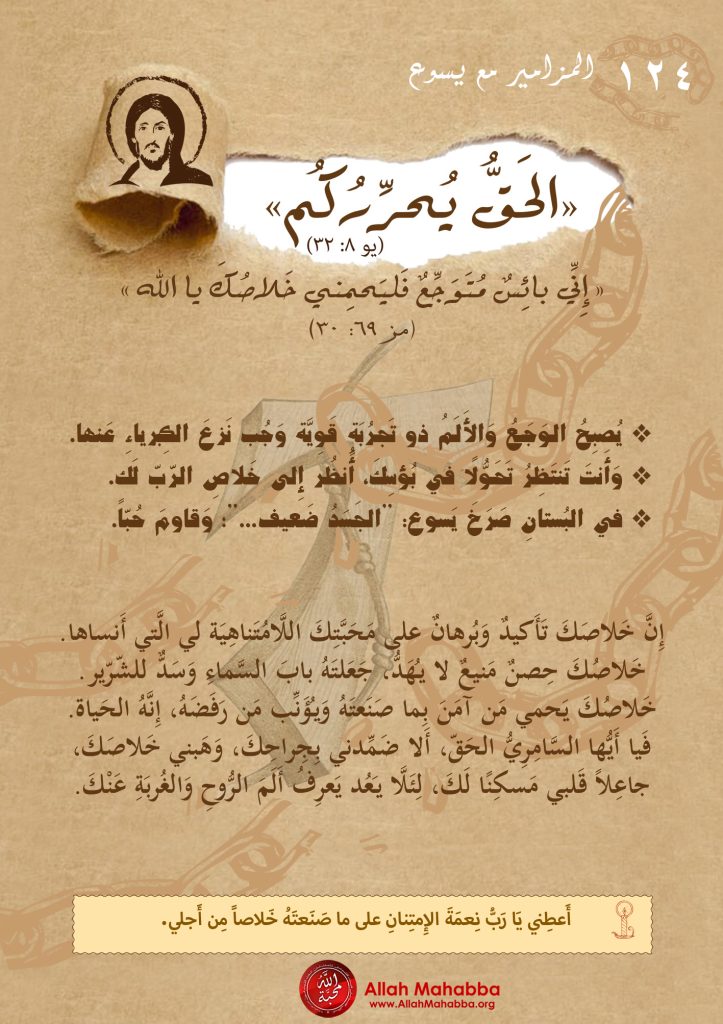 ١٢٤ المزامير مع يسوع
«الحَقُّ يُحرِّرُكُم»
(يو ٨: ٣٢)
« إِنِّي بائِسٌ مُتَوَجِّعٌ فَليَحمِني خَلاصُكَ يا الله »
(مز ٦٩: ٣٠)
❖ يُصبِحُ الوَجَعُ وَالأَلَمُ ذو تَجرُبَةٍ قَوِيَّة وَجُب نَزعَ الكِبرياءِ عَنها.
❖ وَأَنتَ تَنتَظِرُ تَحَوُّلًا في بُؤسِكَ، أُنظُر إِلى خَلاصِ الرّبّ لَك.
❖ في البُستانِ صَرَخَ يَسوع: "الجَسَدُ ضَعيف..."؛ وَقاومَ حُبّاً.
إِنَّ خَلاصَكَ تَأكيدٌ وَبُرهانٌ على مَحَبَّتِكَ اللَّامُتَناهِيَة لي الَّتي أَنساها.
خَلاصُكَ حِصنٌ مَنيعٌ لا يُهَدُّ، جَعَلتَهُ بابَ السَّماءِ وَسَدٌّ للشّرّير.
خَلاصُكَ يَحمي مَن آمَنَ بِما صَنَعتَهُ وَيُؤَنِّب مَن رَفَضَهُ، إِنَّهُ الحَياة.
فَيا أَيُّها السَّامِرِيُّ الحَقّ، أَلا ضَمِّدني بِجِراحِكَ، وَهَبني خَلاصَكَ،
جاعِلاً قَلبي مَسكِنًا لَكَ، لِئَلَّا يَعُد يَعرِفُ أَلَم الرُّوحِ وَالغُربَةِ عَنْكَ.
أَعطِني يَا رَبُّ نِعمَةَ الإِمتِنانِ على ما صَنَعتَهُ خَلاصاً مِن أَجلي.
الله محبّة
Allah Mahabba
www.AllahMahabba.org